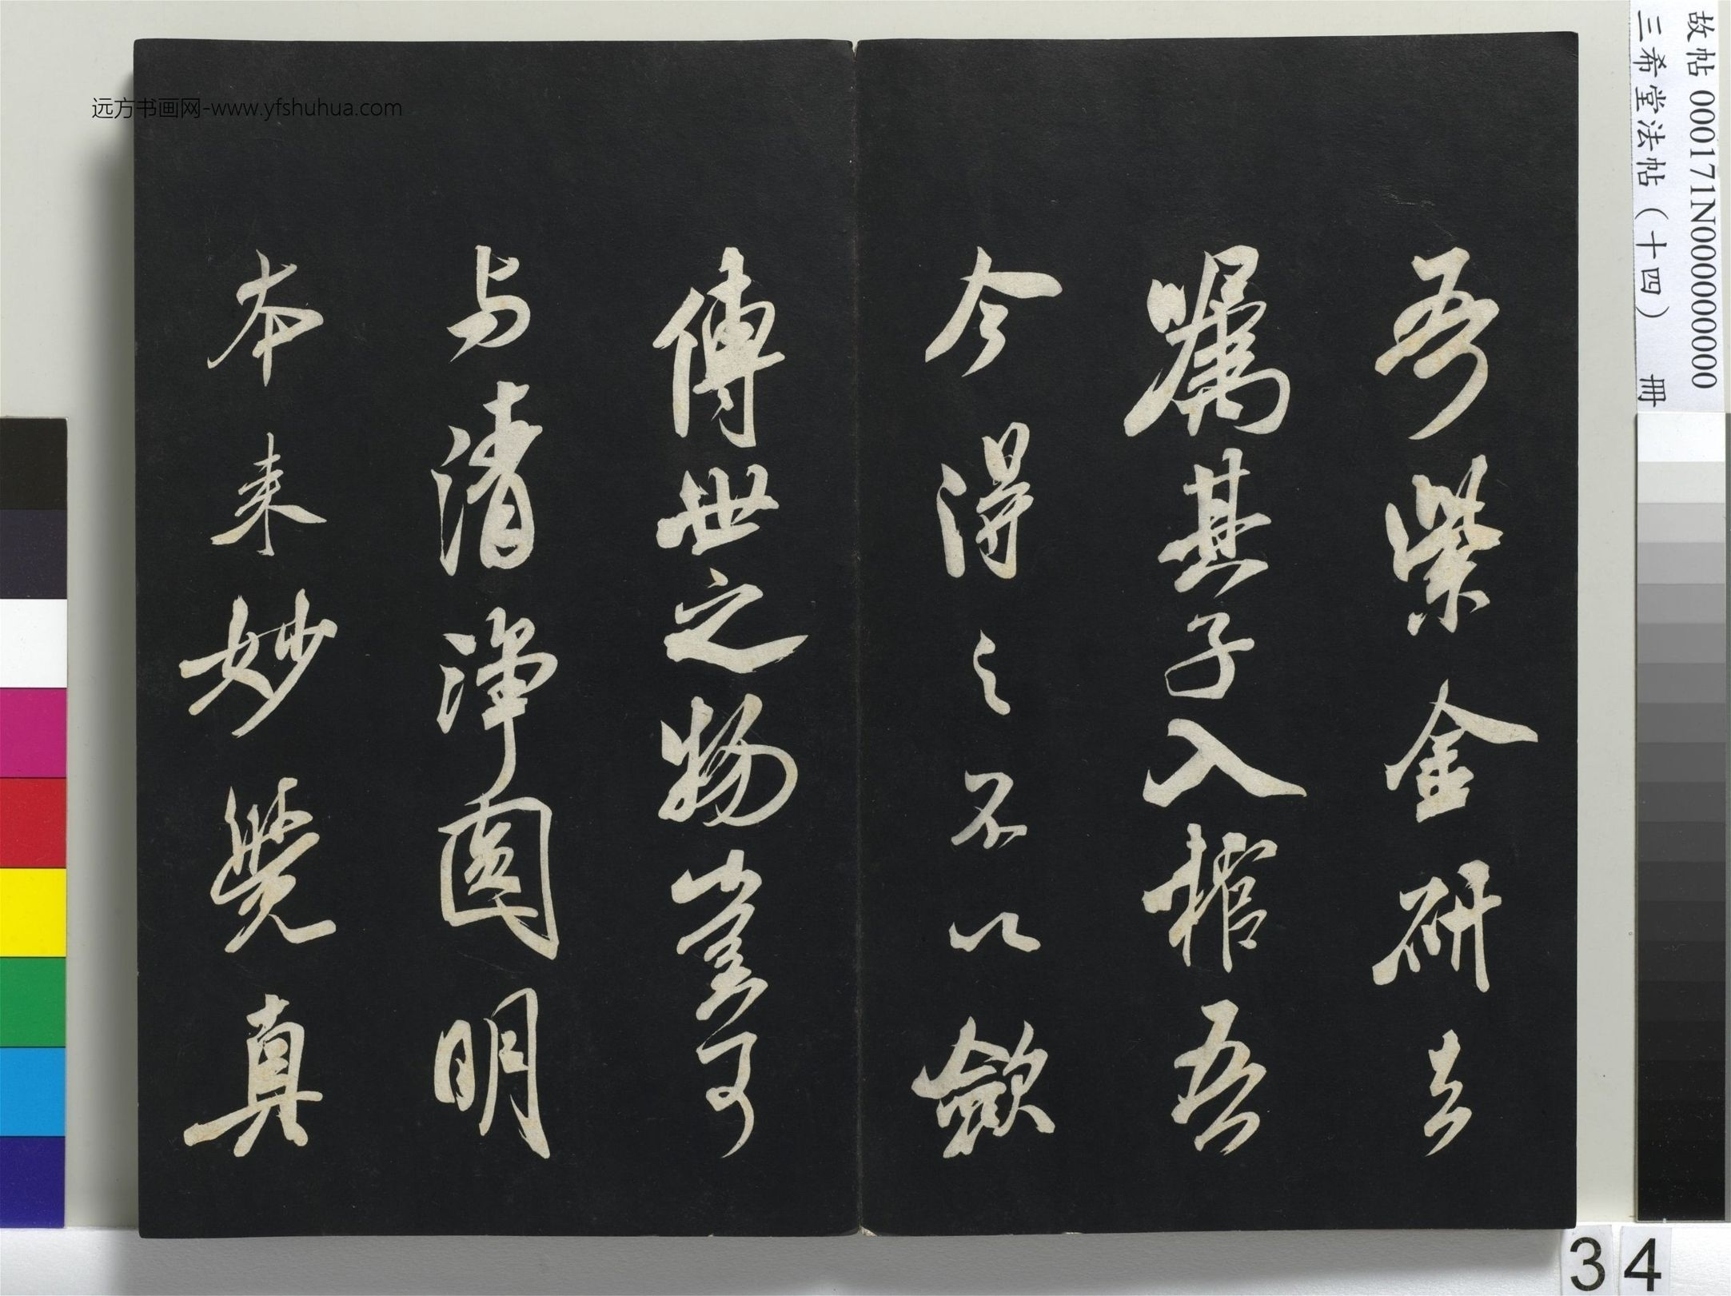 吾紫金研去
嘱其子入棺吾
今得之不以歛
傳世之物豈可
与清淨圓明
本来妙覺真
远方书画网-www.yfshuhua.com
故帖 000171N000000000
三希堂法帖（十四） 冊
34